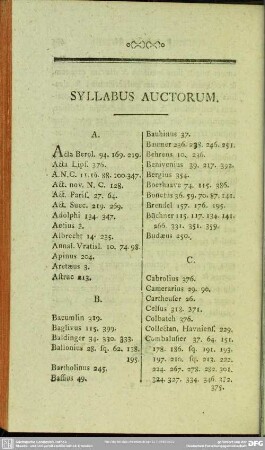 SYLLABUS AUCTORUM.
A.
Acta Berol. 94. 169. 219.
Acta Lipſ. 376.
A.N.C. 11.16. 88. 200.347.
Act. nov. N. C. 128.
Act. Pariſ. 27. 64.
Act. Suec. 219. 269.
Adolphi 134. 347.
Aetius 3.
Albrecht 14. 235.
Annal. Vratisl. 10. 74. 98.
Apinus 204.
Aretæus 3.
Aſtruc 213.
B.
Bacumlin 219.
Baglivus 115. 399.
Baldinger 34. 330. 333.
Ballonius 28. ſq. 62. 178.
195.
Bartholinus 245.
Baſſius 49.
Bauhinus 37.
Baumer 236. 238. 246. 291.
Behrens 10. 236.
Benivenius 39. 217. 392.
Bergius 354.
Boerhaave 74. 115. 386.
Bonetus 36. 59. 70. 87. 141.
Brendel 157. 176. 195.
Büchner 115. 117. 134. 141.
266. 331. 351. 359.
Budæus 250.
C.
Cabrolius 276.
Camerarius 29. 90.
Cartheuſer 26.
Celſus 318. 371.
Colbatch 276.
Collectan. Havnienſ. 229.
Cumbaluſier 37. 64. 151.
178. 186. ſq. 191. 193.
197. 210. ſq. 213. 222.
224. 267. 278. 282. 301.
324. 327. 334. 346. 372.
375.